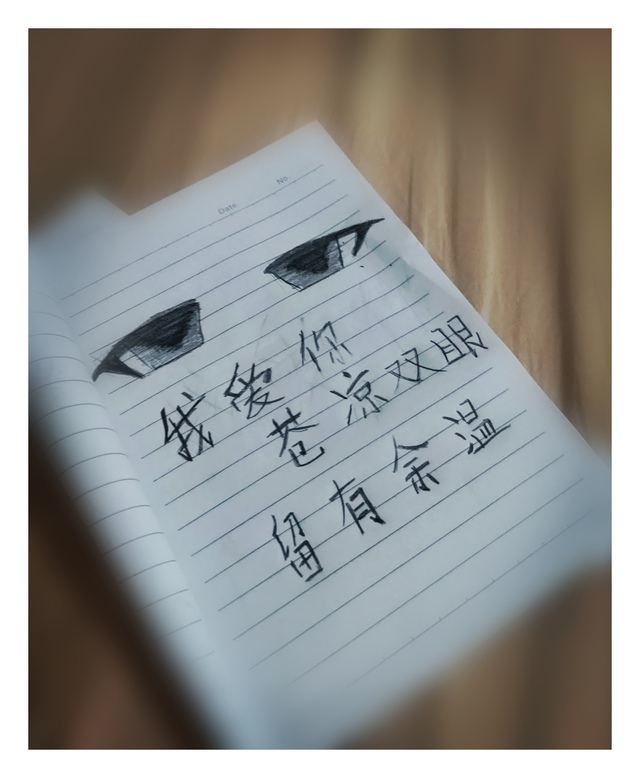 Date
No.
我爱你
苍凉双眼
留有余温